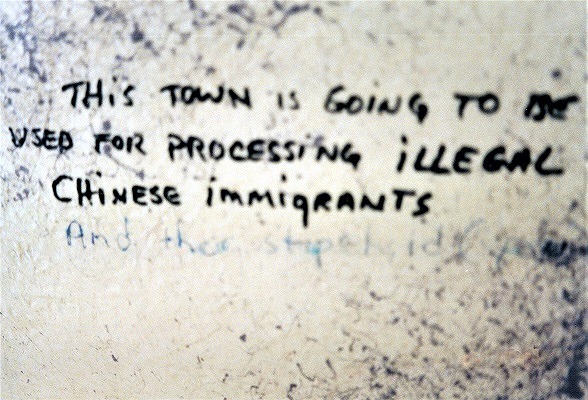 THiS TOWN iS GOiNG TO BE
USED FOR PROCESSiNG iLLEGAL
CHiNESE immigRANTS
And